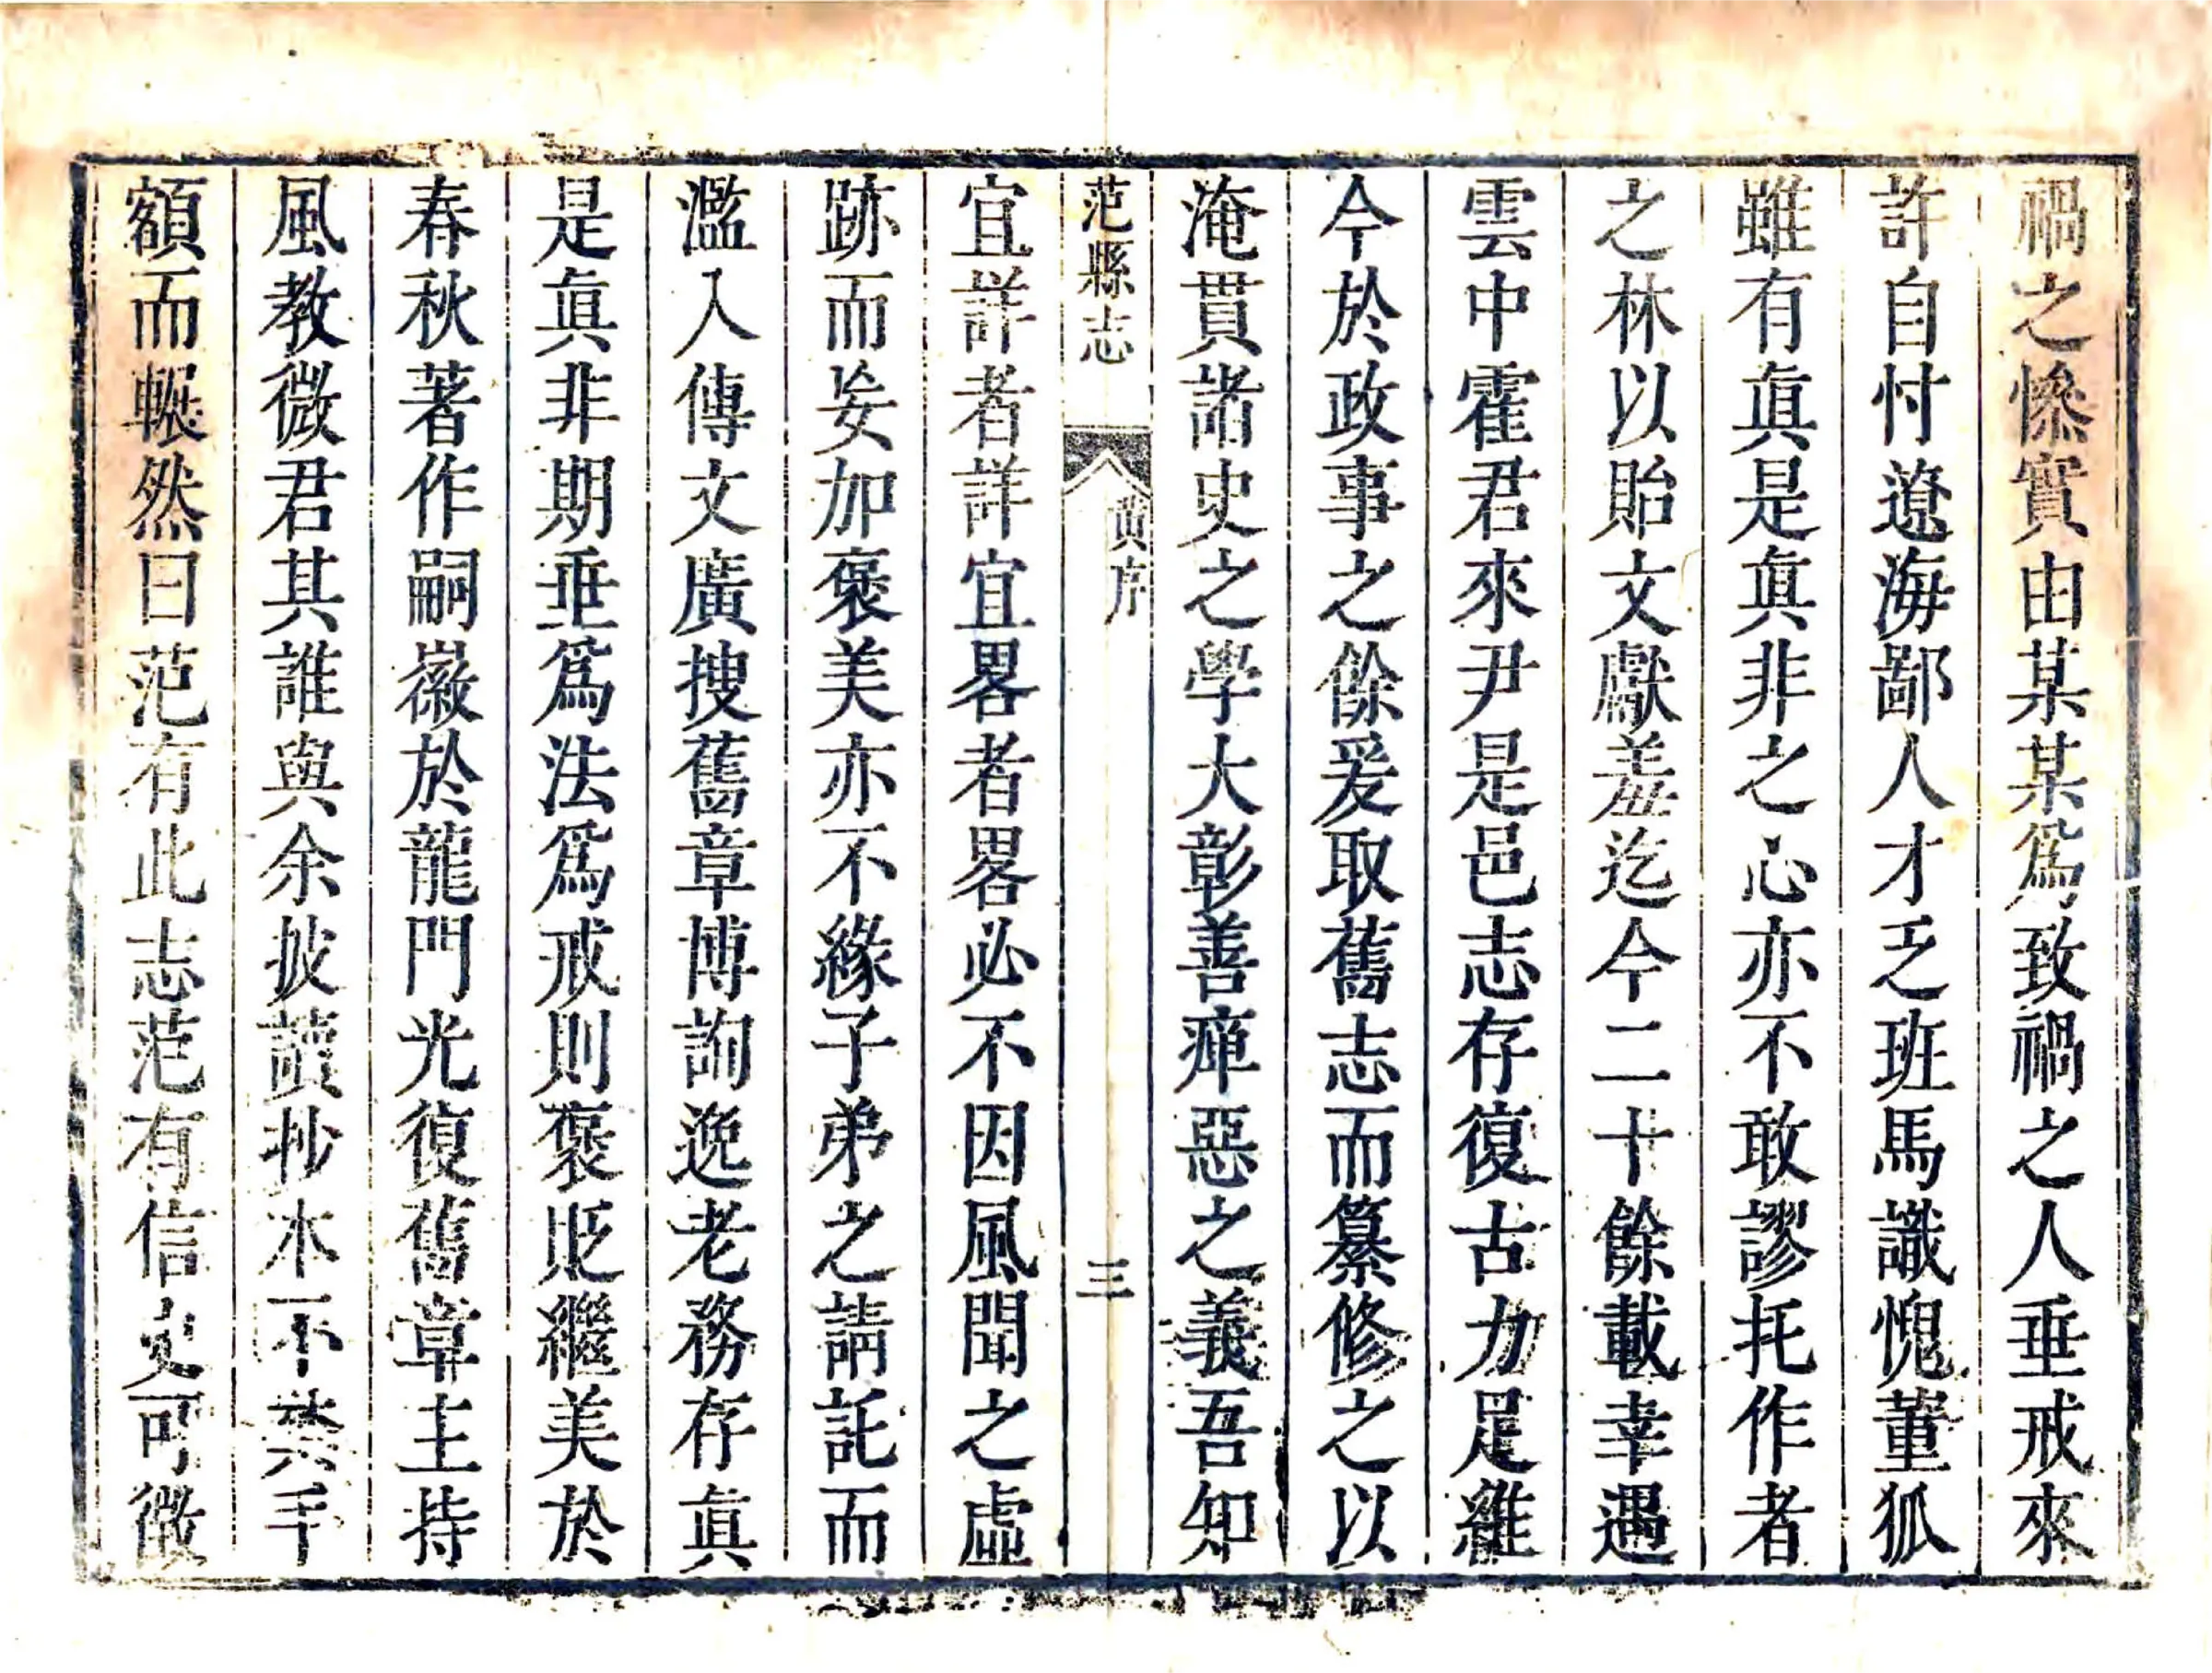 禍之慘實由某某爲致禍之人垂戒來
許自忖遼海鄙人才乏班馬識愧董狐
雖有眞是眞非之心亦不敢謬托作者
之林以貽文獻羞迄今二十餘載幸遇
雲中霍君來尹是邑志存復古力足維
今於政事之餘爰取舊志而纂修之以
淹貫諸史之學大彰善癉惡之義吾知
范縣志
序
三
宜詳者詳宜畧者畧必不因風聞之虛
跡而妄加褒美亦不緣子弟之請託而
濫入傳文廣搜舊章博詢逸老務存眞
是眞非期垂爲法爲戒則褒貶繼美於
春秋著作嗣徽於龍門光復舊章主持
風教微君其誰與余披讀抄本不禁手
額而囅然曰范有此志范有信史可徵